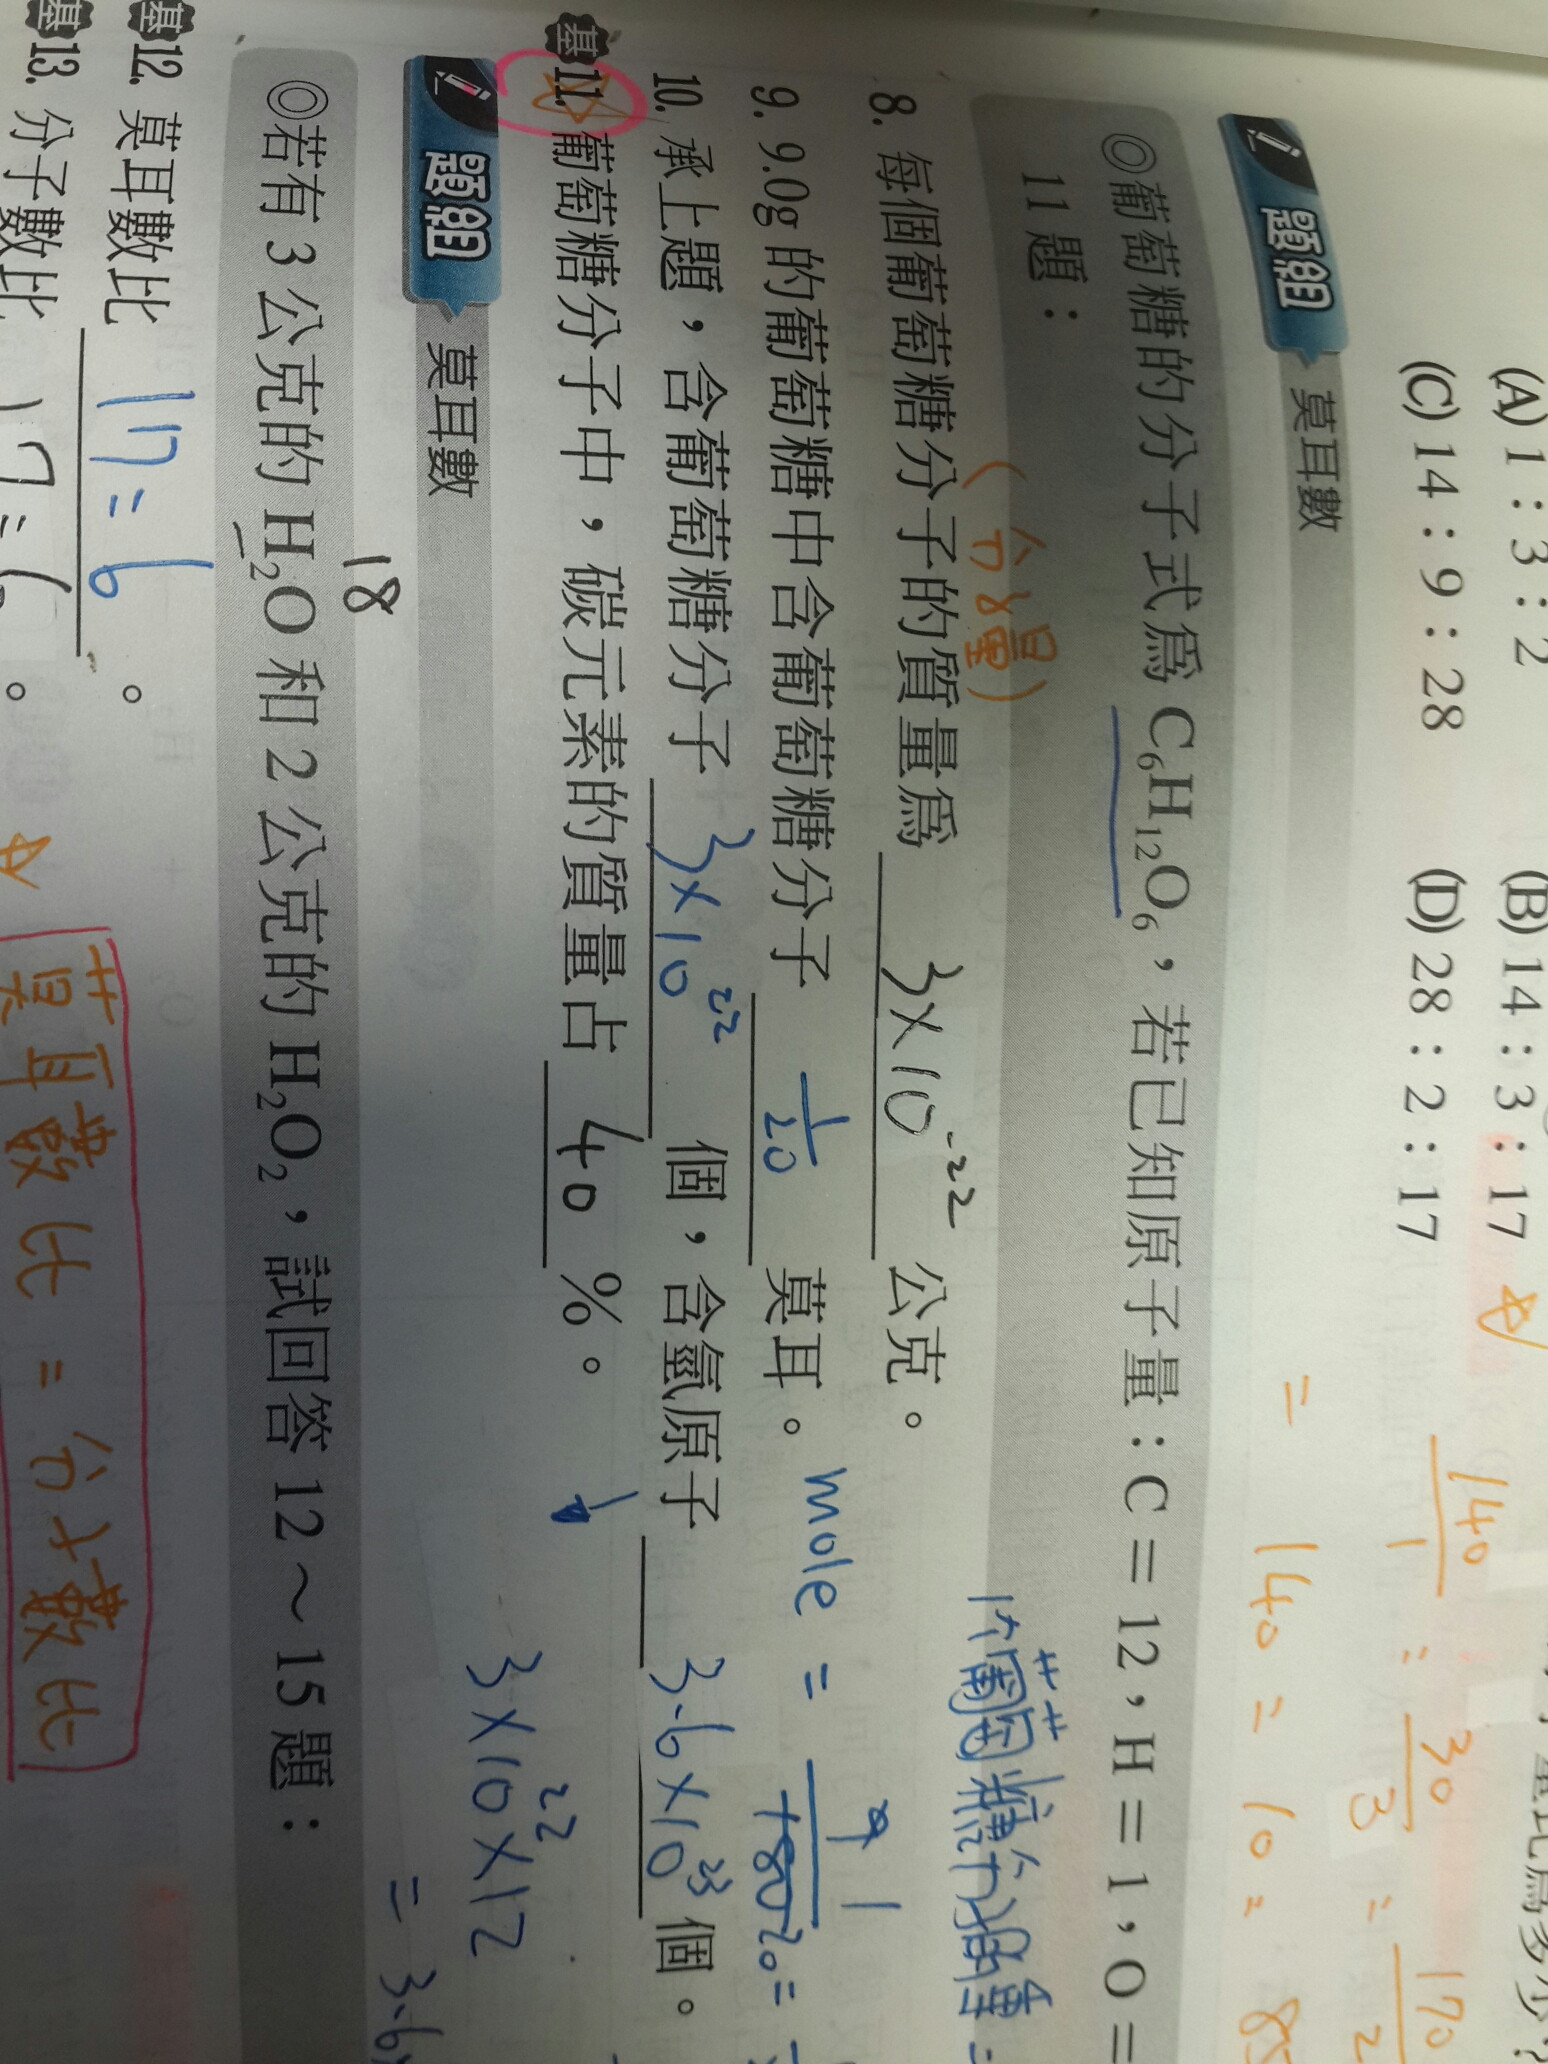 (A) 1：3：2 (B) 14：3：17
(C) 14：9：28 (D) 28：2：17
= 140/1 : 30/3 = 170/2
= 140 = 10 =
題組 莫耳數
◎葡萄糖的分子式為 C₆H₁₂O₆，若已知原子量：C = 12，H = 1，O =
11 題：
(分子量)
8. 每個葡萄糖分子的質量為 3×10⁻²² 公克。
9. 9.0g 的葡萄糖中含葡萄糖分子 1/20 莫耳。 mole =
10. 承上題，含葡萄糖分子 3×10²² 個，含氫原子 3.6×10²³ 個。
基11. 葡萄糖分子中，碳元素的質量占 40 %。
3×10²²×12
= 3.6×
題組 莫耳數
18
◎若有 3 公克的 H₂O 和 2 公克的 H₂O₂，試回答 12～15 題：
基12. 莫耳數比 17=6 。
基13. 分子數比 17=6 。
莫耳數比 = 分子數比